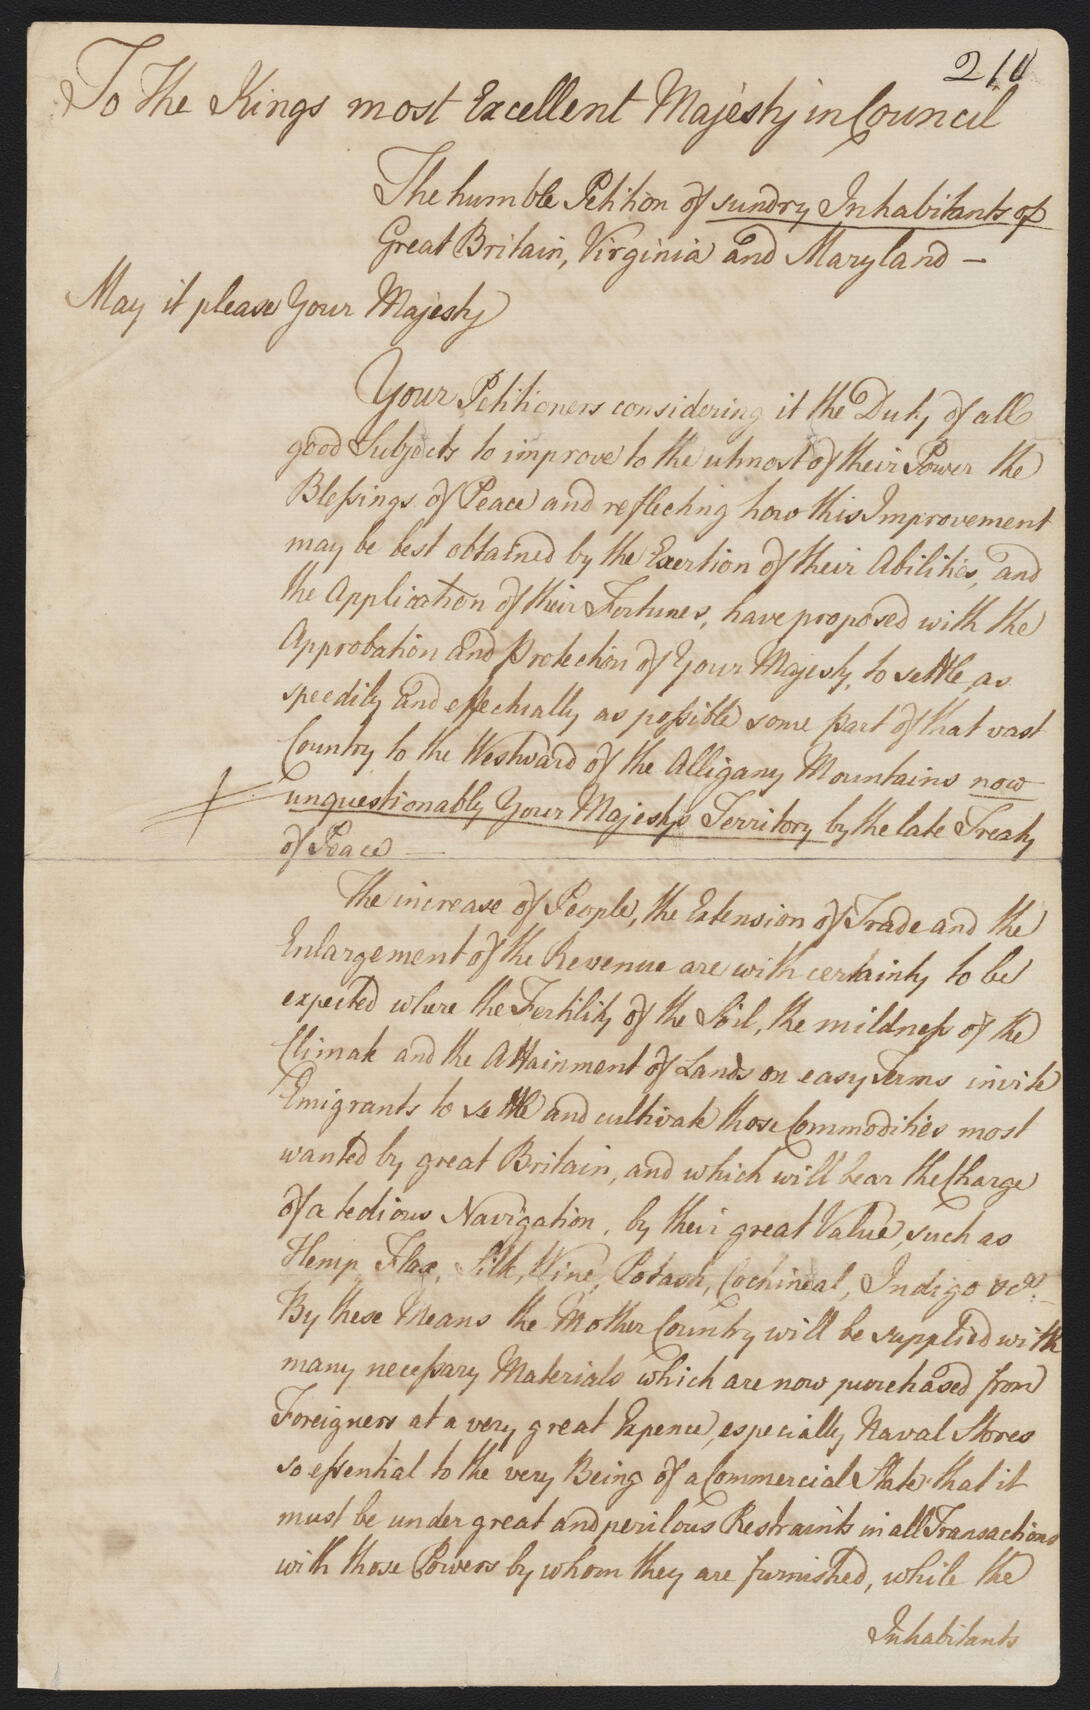 210
To the Kings most Excellent Majesty in Council
The humble Petition of sundry Inhabitants of
Great Britain, Virginia and Maryland —
May it please Your Majesty
Your Petitioners considering it the Duty of all
good Subjects to improve to the utmost of their Power the
Blessings of Peace and reflecting how this Improvement
may be best obtained by the Exertion of their Abilities, and
the Application of their Fortunes, have proposed with the
Approbation and Protection of Your Majesty, to settle, as
speedily and effectually as possible some part of that vast
Country to the Westward of the Alligany Mountains now
unquestionably Your Majestys Territory by the late Treaty
of Peace —
The increase of People, the Extension of Trade and the
Enlargement of the Revenue are with certainty to be
expected where the Fertility of the Soil, the mildness of the
Climate and the Attainment of Lands on easy Terms invite
Emigrants to settle and cultivate those Commodities most
wanted by great Britain, and which will bear the Charge
of a tedious Navigation, by their great Value, such as
Hemp, Flax, Silk, Wine, Potash, Cochineal, Indigo &ca.
By these Means the Mother Country will be supplied with
many necessary Materials which are now purchased from
Foreigners at a very great Expence, especially Naval Stores
so essential to the very Being of a Commercial State that it
must be under great and perilous Restraints in all Transactions
with those Powers by whom they are furnished, while the
Inhabitants